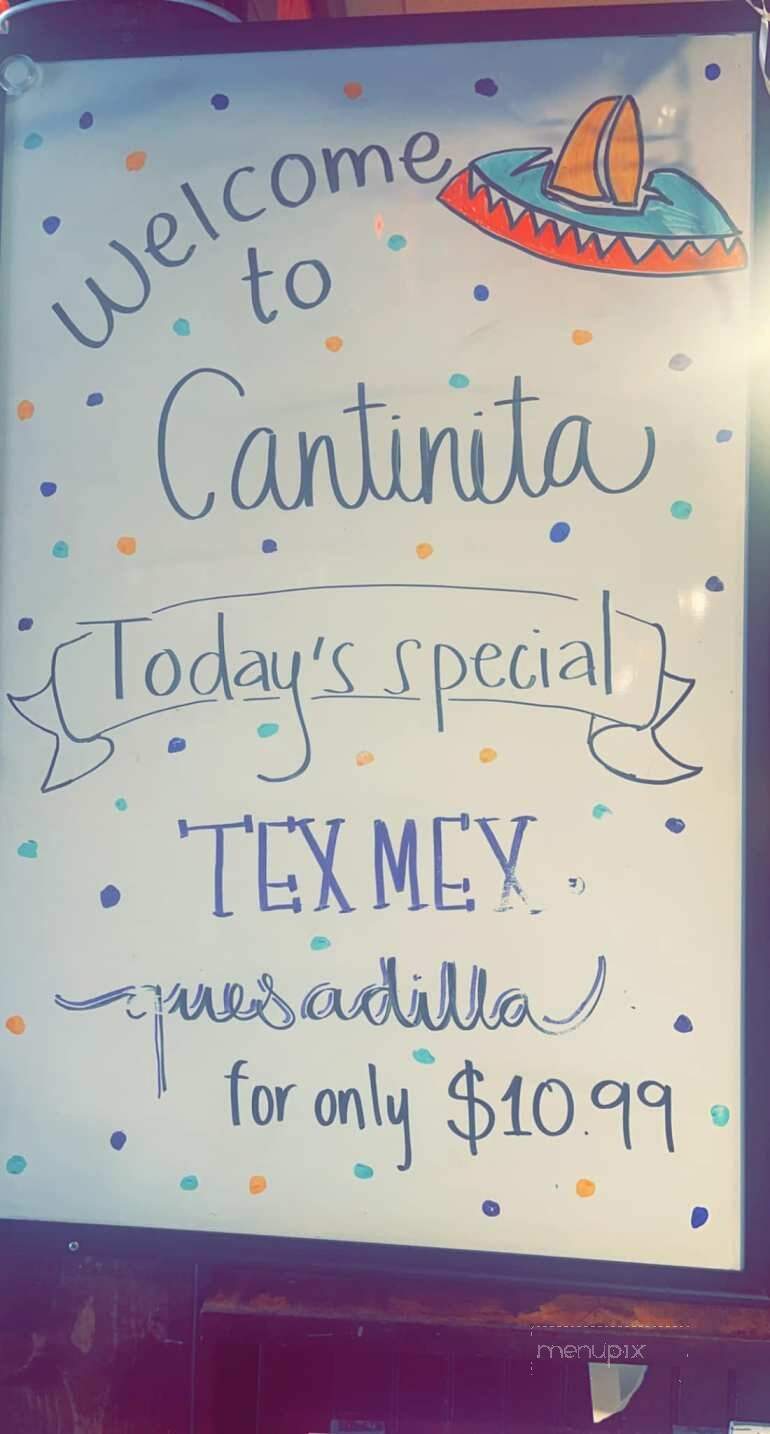 Welcome
to
Cantinita
Today's special
TEX MEX
quesadilla
for only $10.99
menupix